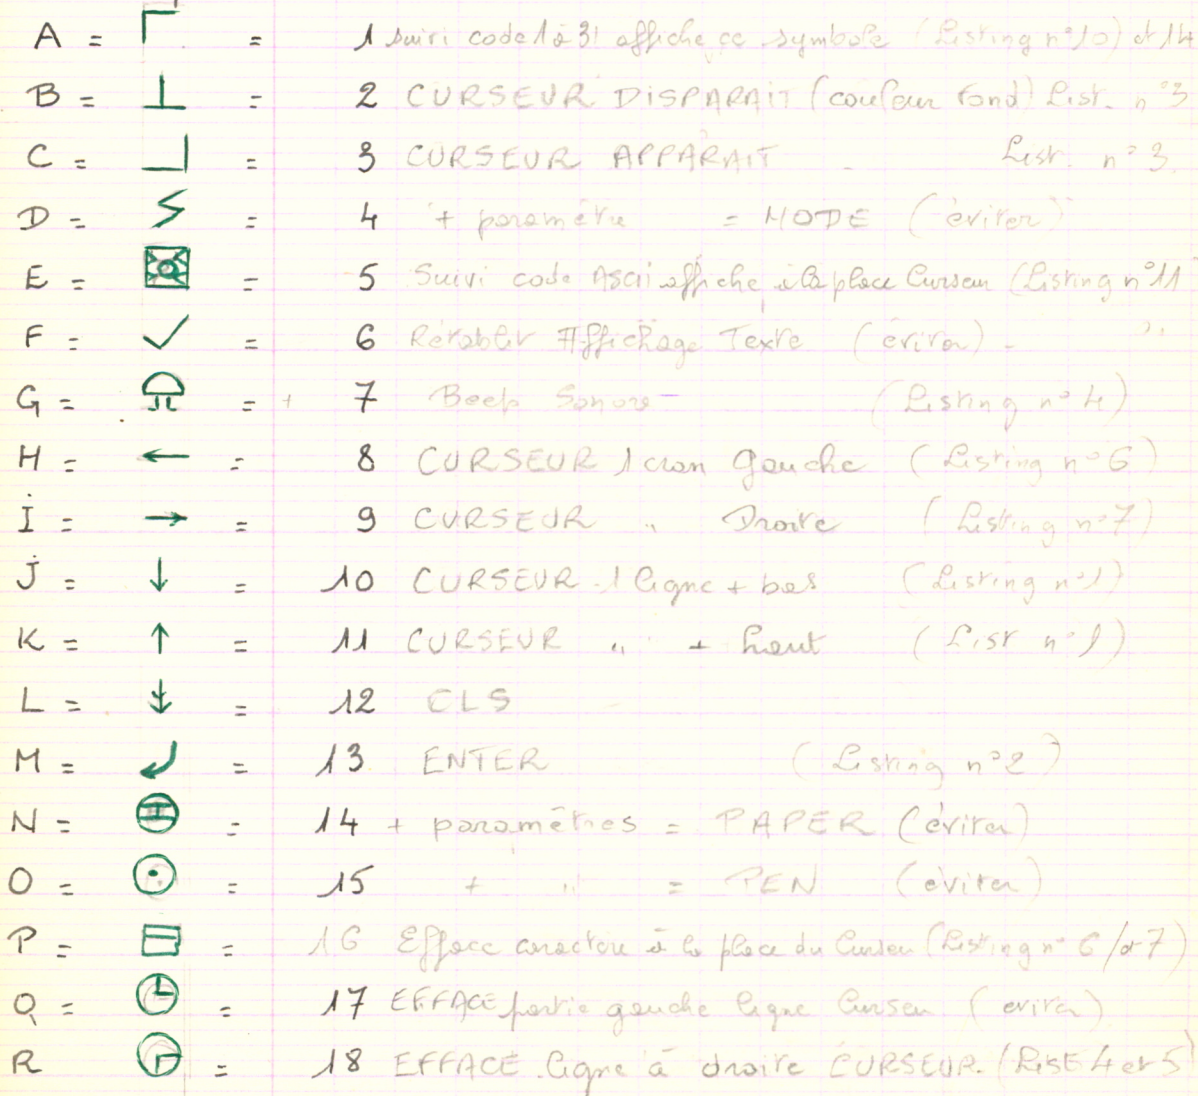 A = = 1 suivi code 1 à 31 affiche ce symbole (Listing n°10) et 14
B = ⊥ = 2 CURSEUR DISPARAIT (couleur fond) List. n°3
C = = 3 CURSEUR APPARAIT - List. n°3
D = = 4 + paramètre = MODE (éviter)
E = = 5 Suivi code Ascii affiche à la place Curseur (Listing n°11
F = ✓ = 6 Rétablir Affichage Texte (éviter) -
G = = + 7 Beep Sonore - (Listing n°4)
H = ← = 8 CURSEUR 1 cran gauche (Listing n°6)
I = → = 9 CURSEUR " Droite (Listing n°7)
J = ↓ = 10 CURSEUR 1 ligne + bas (Listing n°1)
K = ↑ = 11 CURSEUR " + haut (List n°1)
L = ↡ = 12 CLS
M = ↲ = 13 ENTER (Listing n°2)
N = = 14 + paramètres = PAPER (éviter)
O = ⊙ = 15 + " = PEN (éviter)
P = = 16 Efface caractère à la place du Curseur (Listing n° 6/et 7)
Q = = 17 EFFACE partie gauche ligne Curseur (éviter)
R = 18 EFFACE ligne à droite CURSEUR. (List 4 et 5)